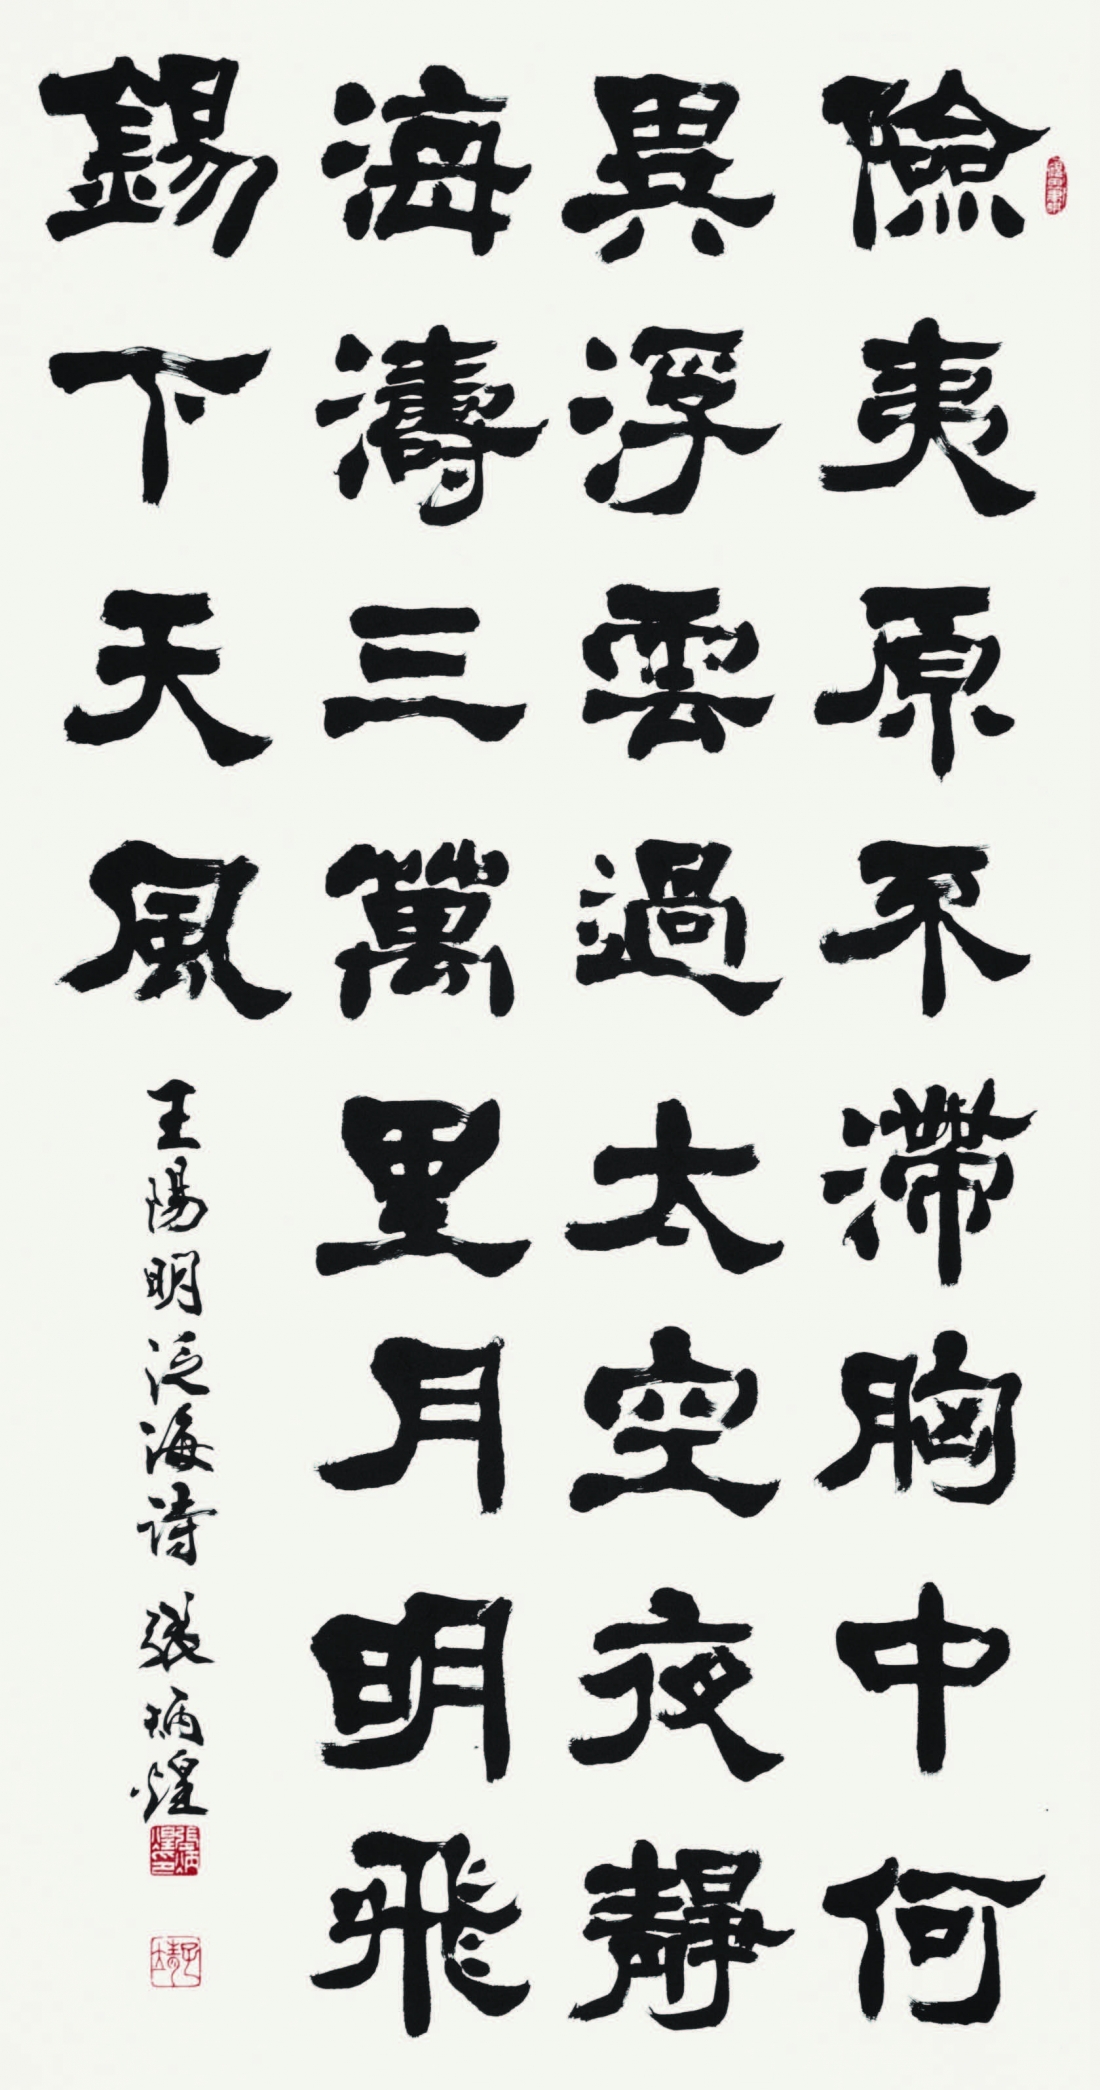 險夷原不滯胸中何
異浮雲過太空夜靜
海濤三萬里月明飛
錫下天風
王陽明泛海詩 張炳煌
張炳煌印